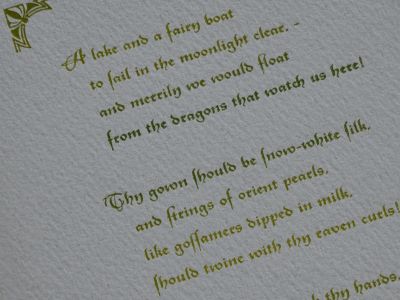 A lake and a fairy boat
to ſail in the moonlight clear, -
and merrily we would float
from the dragons that watch us here!
Thy gown ſhould be ſnow-white ſilk,
and ſtrings of orient pearls,
like goſſamers dipped in milk,
ſhould twine with thy raven curls!
thy hands,